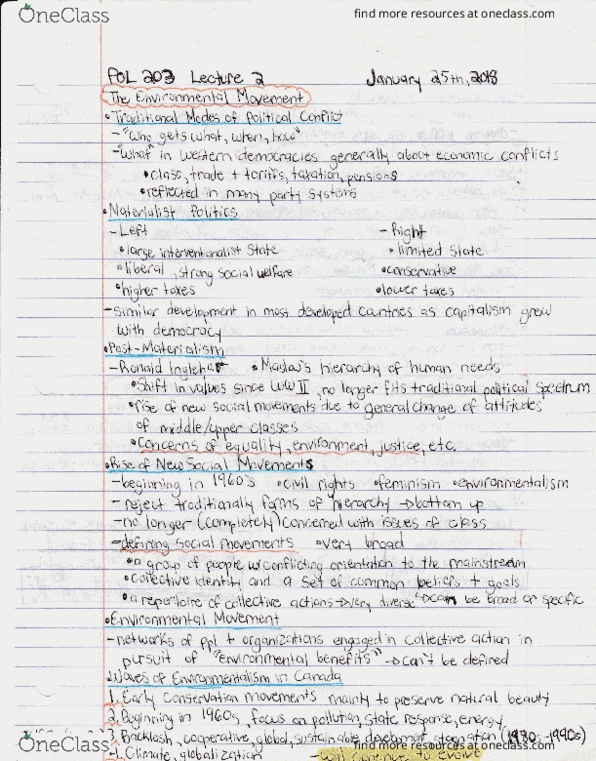 OneClass
find more resources at oneclass.com
POL 203 Lecture 2 January 25th, 2018
The Environmental Movement
• Traditional Modes of Political Conflict
- "who gets what, when, how"
- "What" in western democracies generally about economic conflicts
• class, trade + tariffs, taxation, pensions
• reflected in many party systems
• Materialist Politics
- Left - Right
• large interventionalist State • limited State
• liberal, strong social welfare • conservative
• higher taxes • lower taxes
- similar development in most developed countries as capitalism grew
with democracy
• Post-Materialism
- Ronald Inglehart • Maslow's hierarchy of human needs
• Shift in values since WWII, no longer fits traditional political spectrum
• rise of new social movements due to general change of attitudes
of middle/upper classes
• Concerns of equality, environment, justice, etc.
• Rise of New Social Movements
- beginning in 1960's • civil rights • feminism • environmentalism
- reject traditionally forms of hierarchy → bottom up
- no longer (completely) concerned with issues of class
- defining social movements • very broad
• a group of people w/ conflicting orientation to the mainstream
• collective identity and a set of common beliefs + goals
• a repertoire of collective actions → very diverse → can be broad or specific
• Environmental Movement
- networks of ppl + organizations engaged in collective action in
pursuit of "environmental benefits" → can't be defined
• Waves of Environmentalism in Canada
1. Early Conservation movements mainly to preserve natural beauty
2. Beginning in 1960s, focus on pollution, state response, energy
3. Backlash, cooperative, global, sustainable development (1980s-1990s)
4. Climate, globalization - will continue to evolve
OneClass
find more resources at oneclass.com